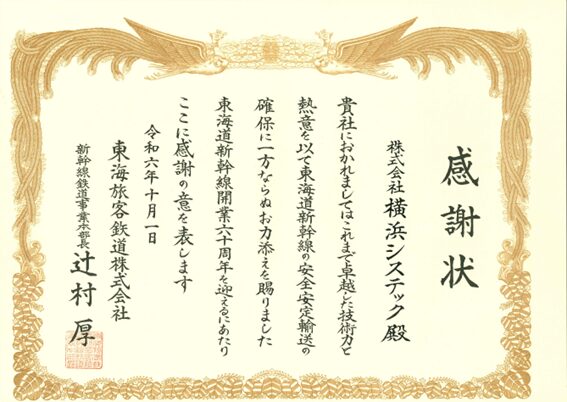 感謝状
株式会社 横浜システック 殿
貴社におかれましてはこれまで卓越した技術力と
熱意を以て東海道新幹線の安全安定輸送の
確保に一方ならぬお力添えを賜りました
東海道新幹線開業六十周年を迎えるにあたり
ここに感謝の意を表します
令和六年十月一日
東海旅客鉄道株式会社
新幹線鉄道事業本部長 辻村 厚